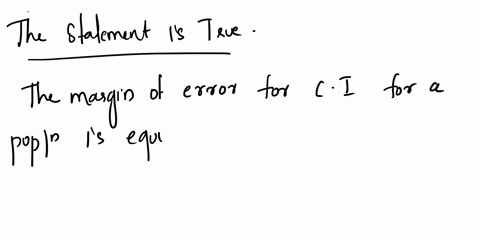 The statement is True.
The margin of error for C.I for a
popln is equ